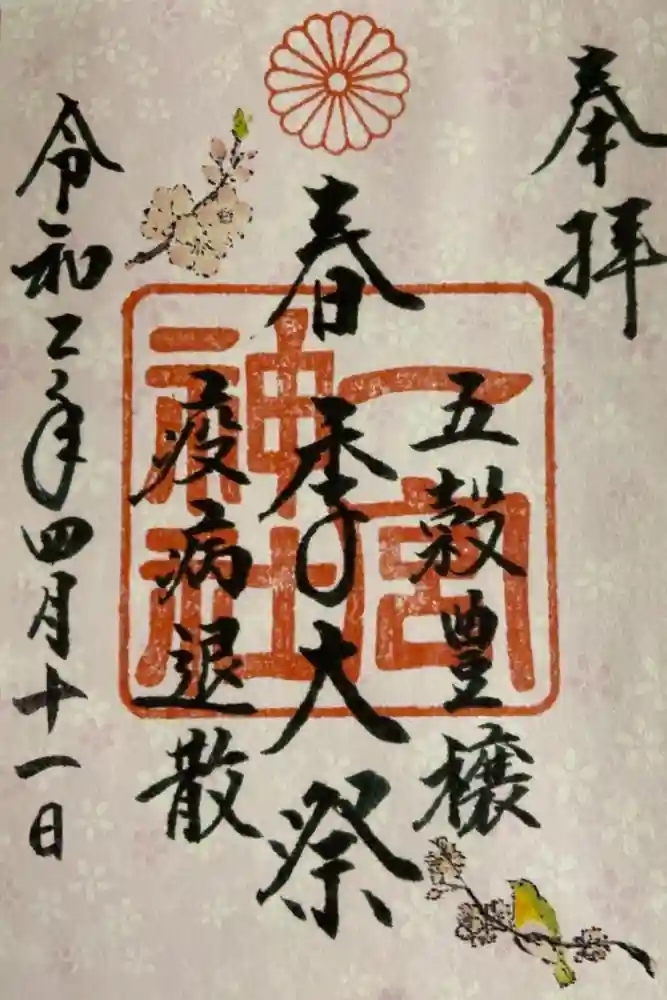 奉拝
五穀豊穣
春季大祭
疫病退散
一宮神社
令和二年四月十一日